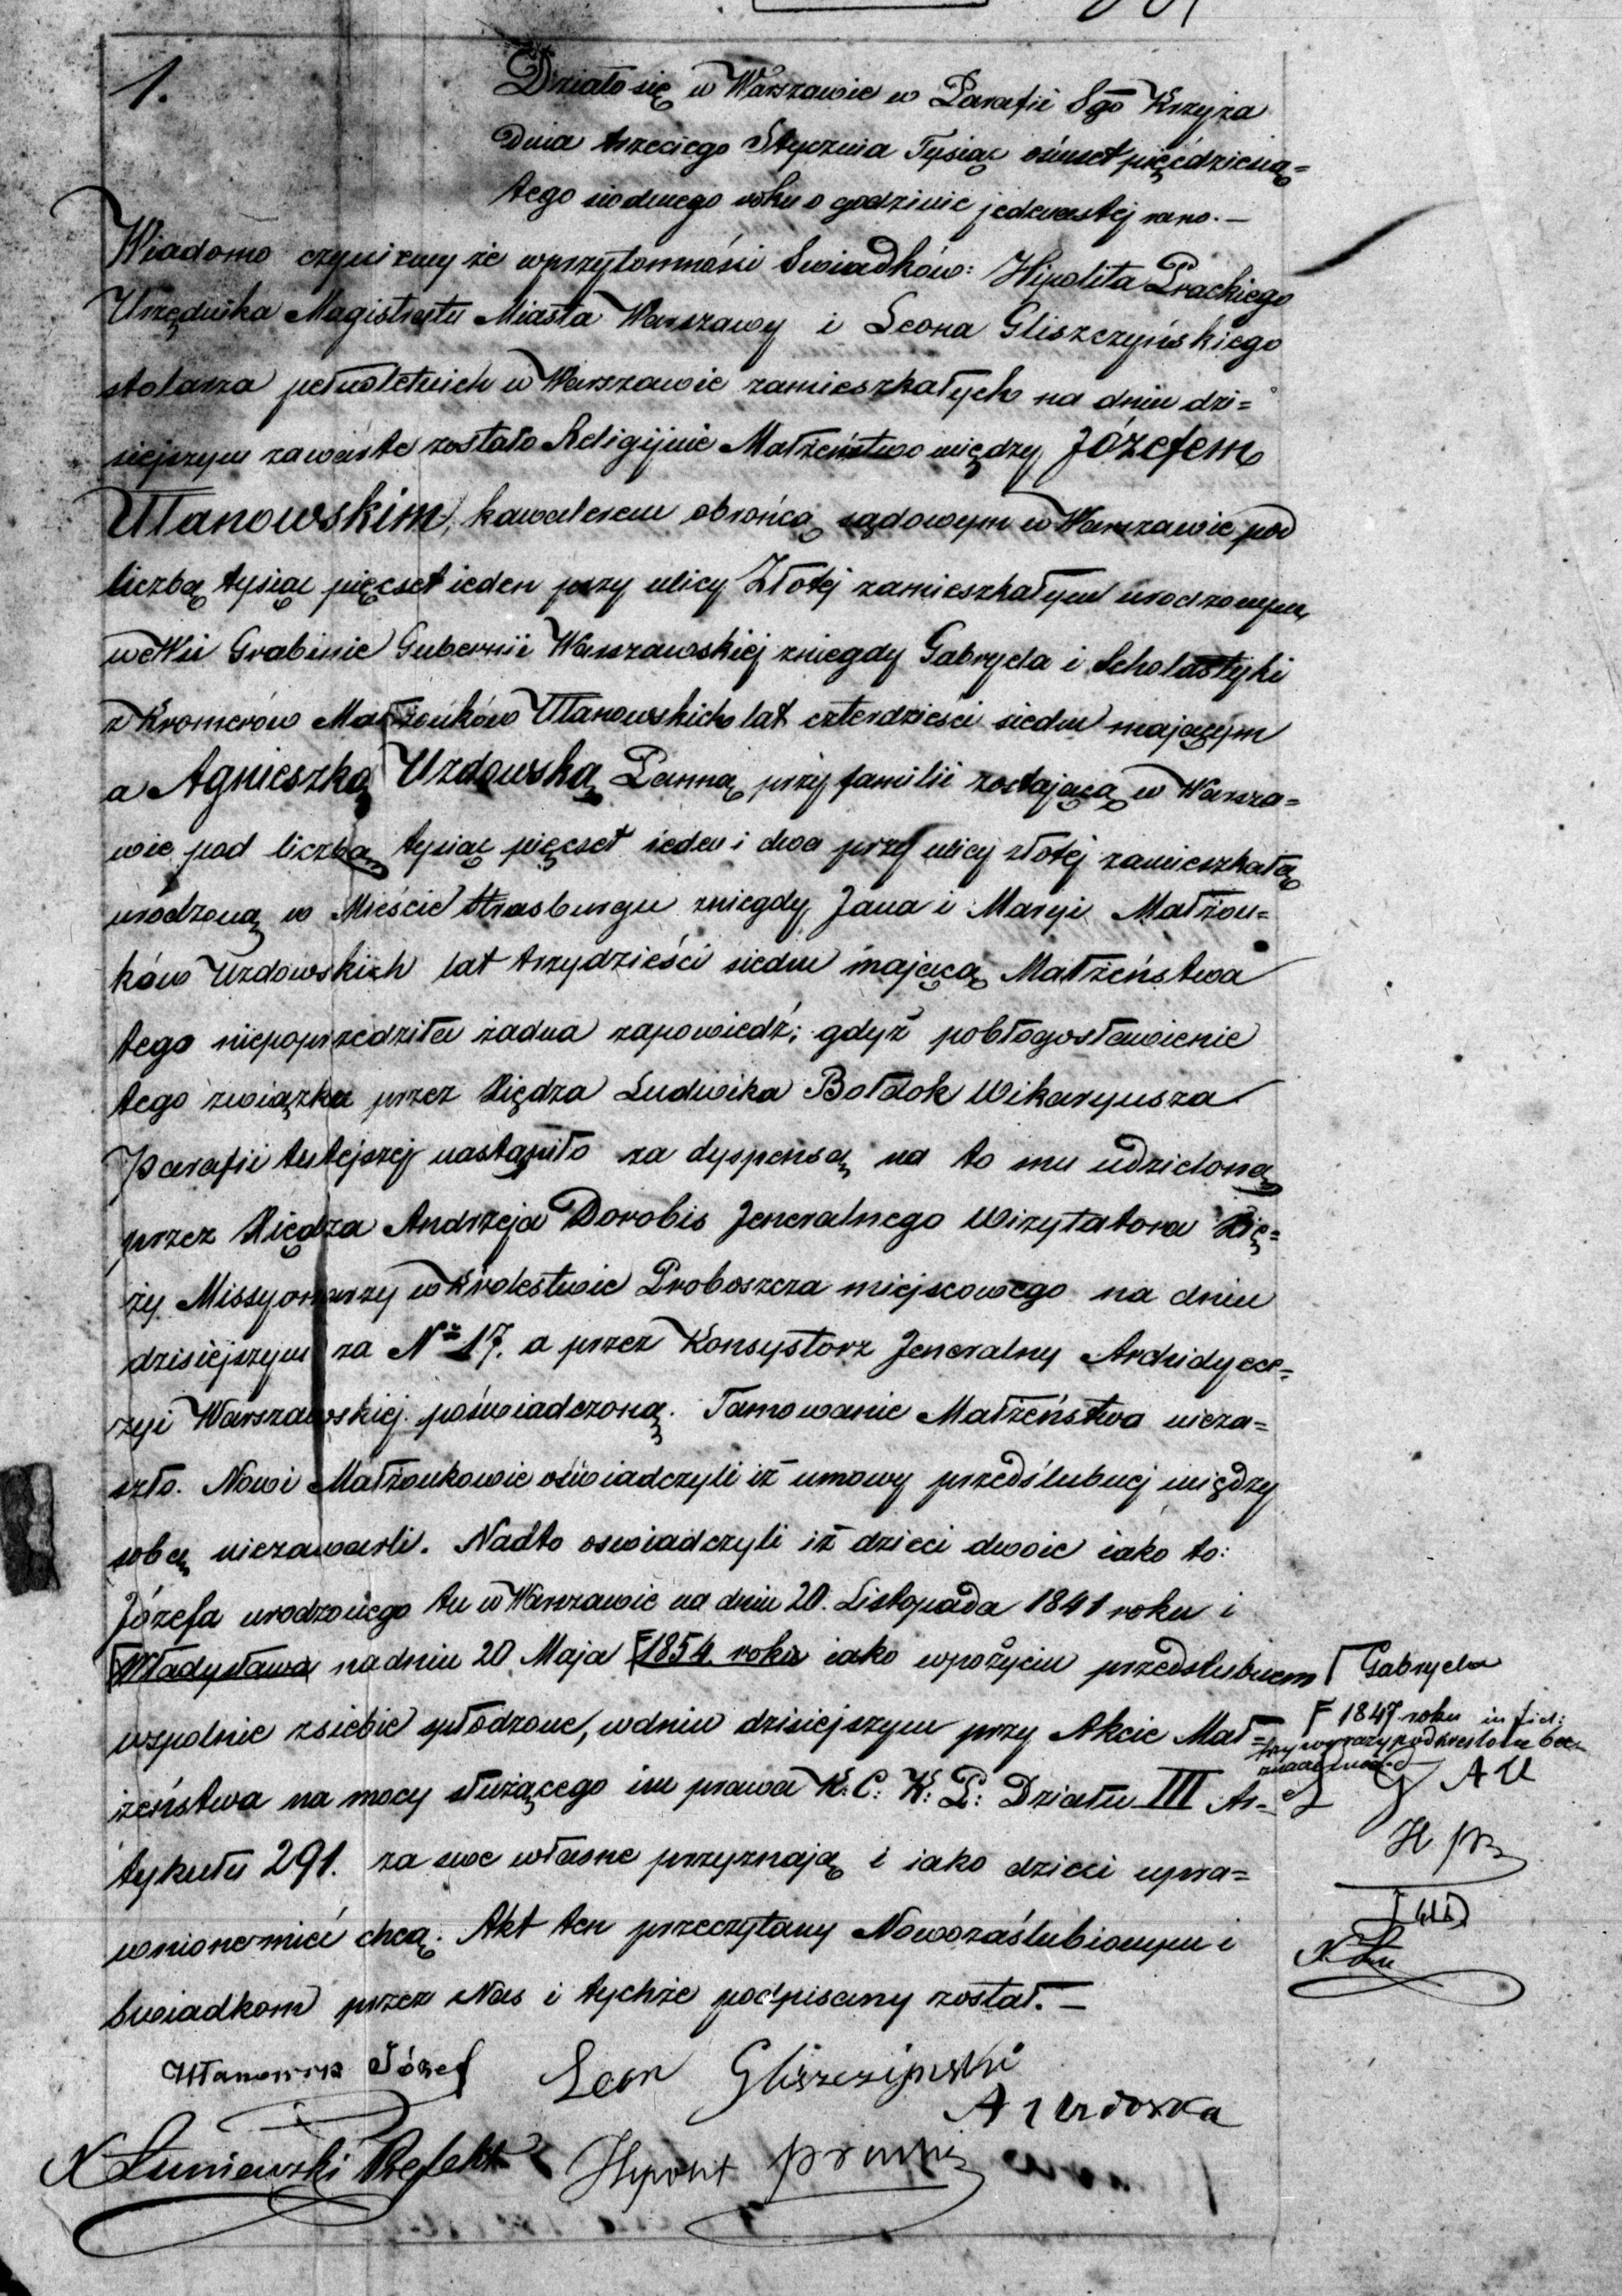 1.
Działo się w Warszawie w Parafii Sgo Krzyża
Dnia trzeciego Stycznia Tysiąc ośmset pięćdziesią=
tego siodmego roku o godzinie jedenastej rano. —
Wiadomo czynimy że wprzytomności Swiadków: Hipolita Prackiego
Urzędnika Magistratu Miasta Warszawy i Leona Gliszczyńskiego
stolarza pełnoletnich w Warszawie zamieszkałych na dniu dzi=
siejszym zawarte zostało Religijnie Małżeństwo między Józefem
Ułanowskim, kawalerem obrońcą sądowym w Warszawie pod
liczbą tysiąc pięcset ieden przy ulicy Złotej zamieszkałym urodzonym
we Wsi Grabinie Gubernii Warszawskiej zniegdy Gabryela i Scholastyki
z Kromerów Małżonków Ułanowskich lat czterdzieści siedm mającym
a Agnieszką Uzdowską Panną przy familii zostającą w Warsza=
wie pod liczbą tysiąc pięcset ieden i dwa przy ulicy złotej zamieszkałą
urodzoną w Mieście Strasburgu zniegdy Jana i Maryi Małżon=
ków Uzdowskich lat trzydzieści siedm mającą Małżeństwa
tego niepoprzedziła żadna zapowiedź; gdyż pobłogosławienie
tego związku przez Xiędza Ludwika Bołdok Wikaryusza
Parafii tutejszej nastąpiło za dyspensą na to mu udzieloną
przez Xiędza Andrzeja Dorobis Jeneralnego Wizytatora Xię=
ży Missyonarzy w Krolestwie Proboszcza miejscowego na dniu
dzisiejszym za No 17. a przez Konsystorz Jeneralny Archidyece=
zyi Warszawskiej poświadczoną. Tamowanie Małżeństwa nieza=
szło. Nowi Małżonkowie oświadczyli iż umowy przedślubnej między
sobą niezawarli. Nadto oswiadczyli iż dzieci dwoie iako to:
Józefa urodzonego tu w Warszawie na dniu 20. Listopada 1841 roku i
Władysława na dniu 20 Maja 1854 roku iako wpożyciu przedslubnem
wspolnie zsiebie spłodzone, wdniu dzisiejszym przy Akcie Mał=
żeństwa na mocy służącego im prawa K. C. K. P. Działu III Ar=
tykułu 291. za swe własne przyznają i iako dzieci upra=
wnione mieć chcą. Akt ten przeczytany Nowozaślubionym i
Swiadkom przez Nas i tychże podpisany został. —
Gabryela
1847 roku in fid:
trzy wyrazy podkreslone bez
A U
H. Pr
X. Łu
Ułanowski Józef Leon Gliszczyński
A Uzdoska
X Łuniewski Prefekt Hipolit Pracki